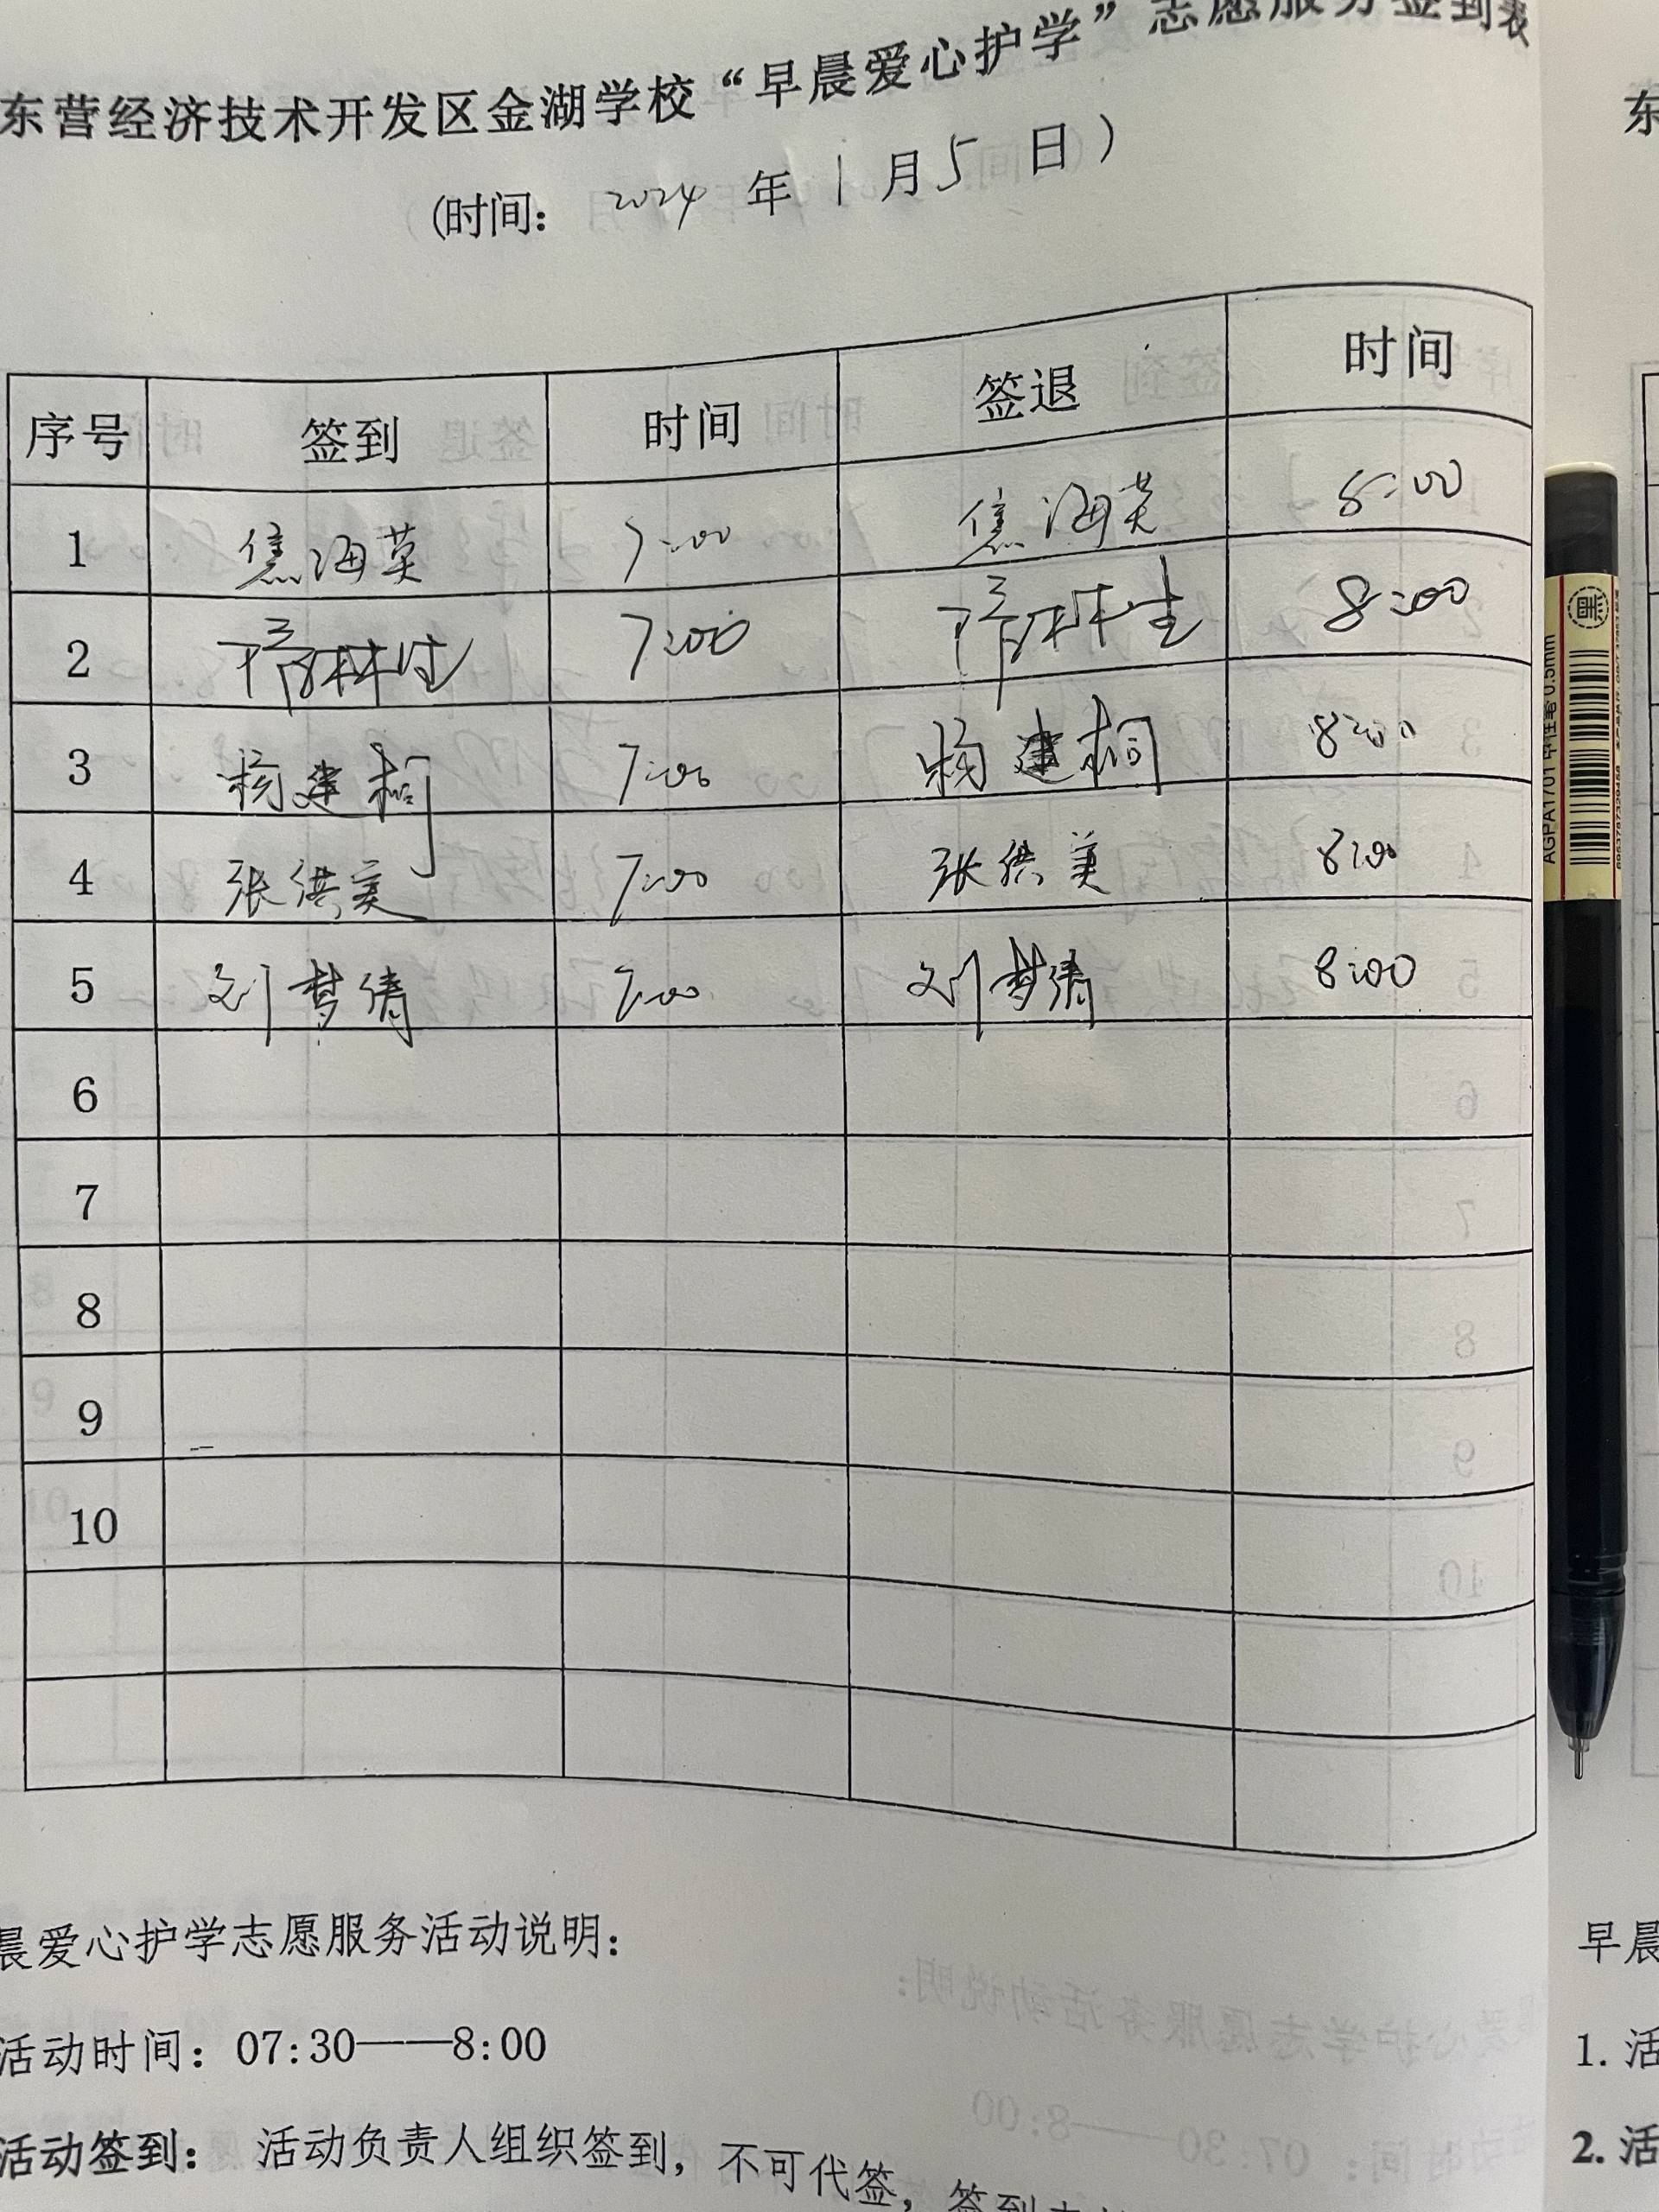 东营经济技术开发区金湖学校“早晨爱心护学”志愿服务签到表
(时间: 2024 年 1 月 5 日)
序号 签到 时间 签退 时间
1 焦海英 7:00 焦海英 8:00
2 7:00 8:00
3 杨建桐 7:00 杨建桐 8:00
4 张洪美 7:00 张洪美 8:00
5 刘梦倩 7:00 刘梦倩 8:00
6
7
8
9
10
晨爱心护学志愿服务活动说明:
活动时间: 07:30——8:00
活动签到: 活动负责人组织签到, 不可代签, 签到
东
早晨
1. 活
2. 活
黑
AGPA1701 中性笔 0.5mm